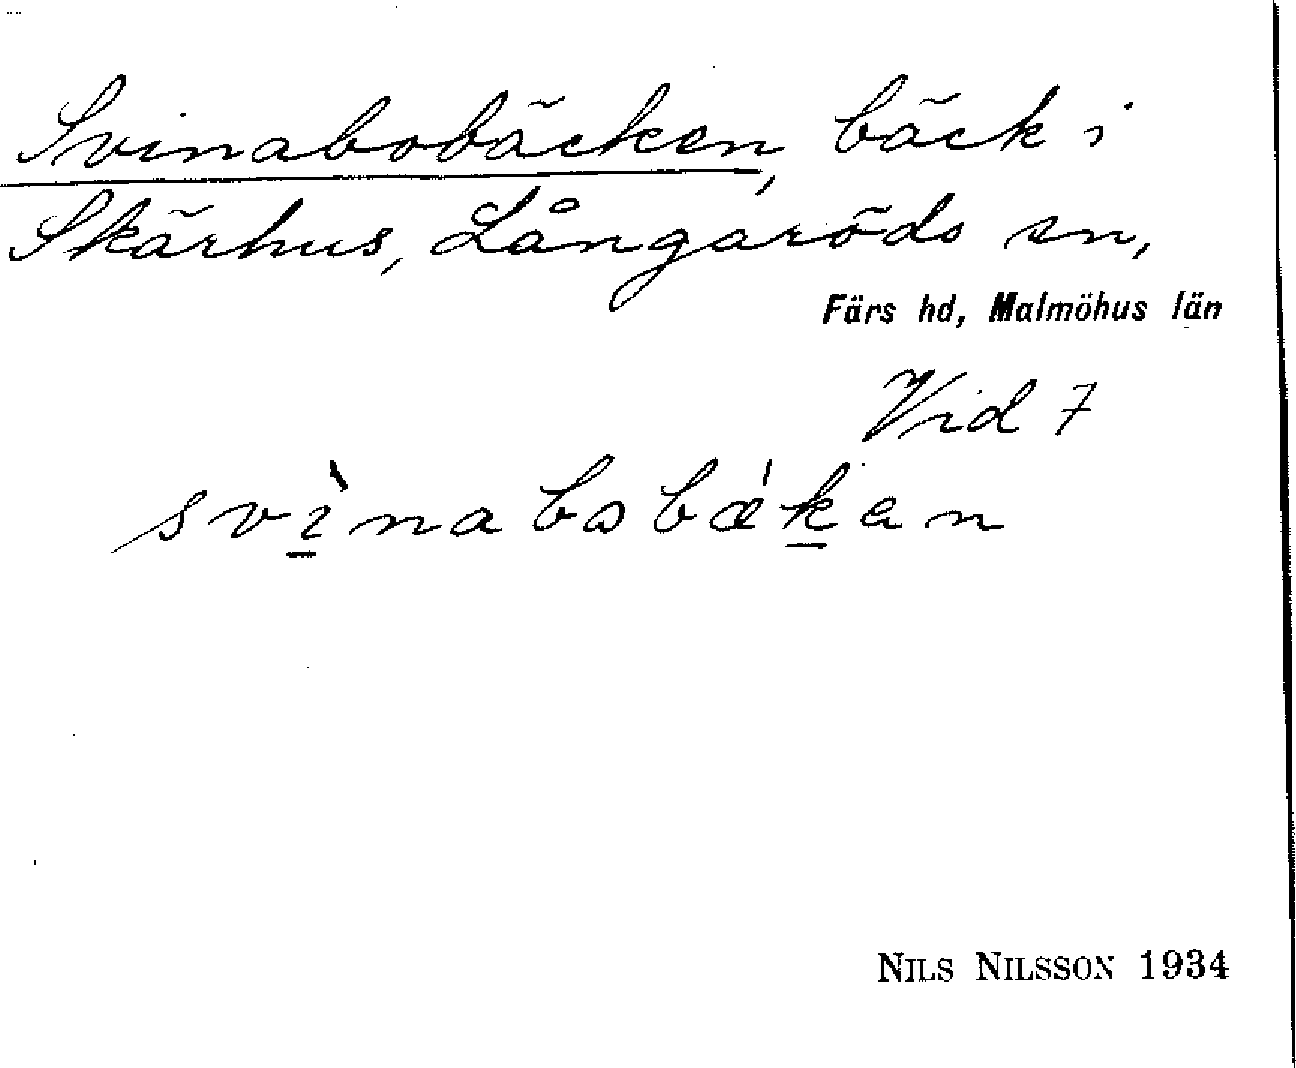 Svinabobäcken, bäck i
Skärhus, Långaröds sn,
Färs hd, Malmöhus län
Vid 7
svı̱̀nabobǽḵan
NILS NILSSON 1934